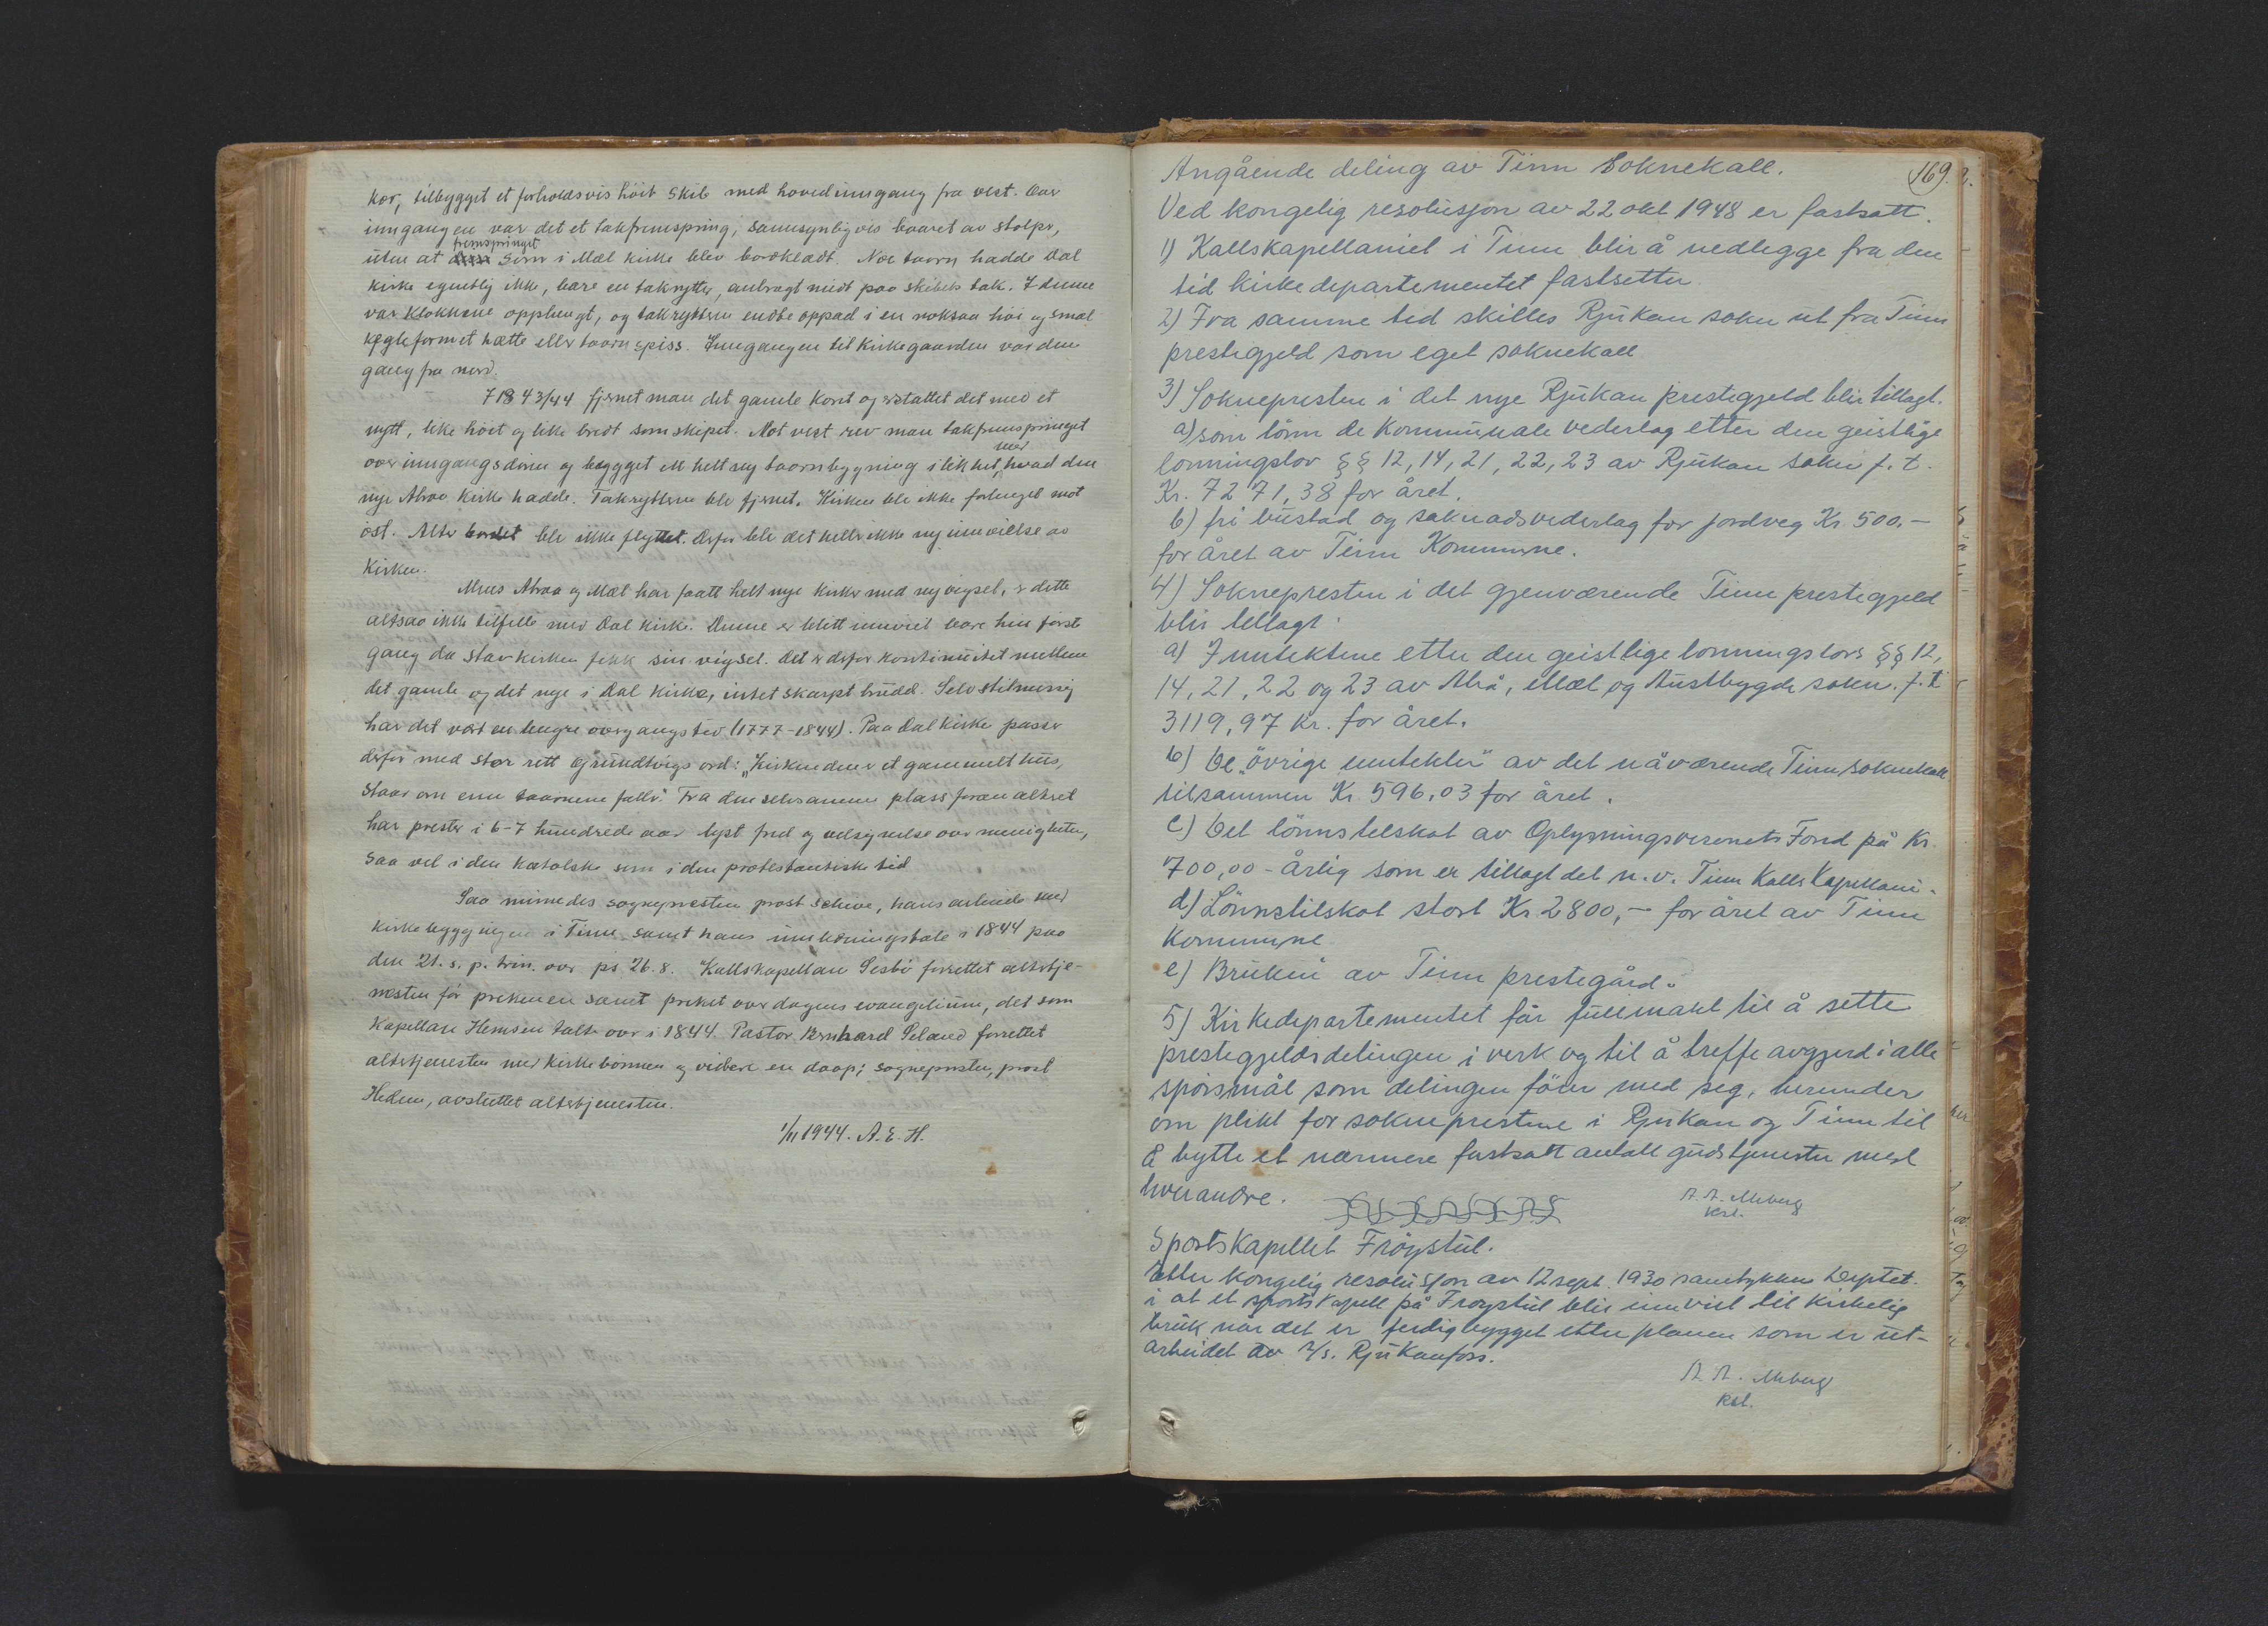 kor, tilbygget et forholdsvis höit skib med hovedinngang fra vest. Over
inngangen var det et takfremspring, sannsynligvis baaret av stolper,
uten at fremspringet som i Mæl kirke blev bordklædt. Noe taarn hadde Dal
kirke egentlig ikke, bare en takrytter, anbragt midt paa skibets tak. I denne
var klokkene opphengt, og takrytteren endte oppad i en noksaa höi og smal
kegleformet hætte eller taarnspiss. Inngangen til kirkegaarden var den
gang fra nord.
I 1843/44 fjernet man det gamle koret og erstattet det med et
nytt, like höit og like bredt som skipet. Mot vest rev man takfremspringet
over inngangsdören og bygget et helt ny taarnbygning i likhet med hvad den
nye Atraa kirke hadde. Takrytteren ble fjernet. Kirken ble ikke forlenget mot
öst. Alterbordet ble ikke flyttet. Derfor ble det heller ikke ny innvielse av
kirken.
Mens Atraa og Mæl har faatt helt nye kirker med ny vigsel, er dette
altsaa ikke tilfelle med Dal kirke. Denne er blitt innviet bare hin förste
gang da stavkirken fikk sin vigsel. Det er derfor kontinuitet mellem
det gamle og det nye i Dal kirke, intet skarpt brudd. Selv stilmessig
har det vært en lengre overgangstid (1777-1844). Paa Dal kirke passer
derfor med stor rett Grundtvigs ord: "Kirken den er et gammelt hus,
staar om enn taarnene falle". Fra den selvsamme plass foran alteret
har prester i 6-7 hundrede aar lyst fred og velsignelse over menigheten,
saa vel i den katolske som i den protestantiske tid
Saa minnedes sogneprесten prost Schive, hans arbeide med
kirkebyggingen i Tinn samt hans innledningstale i 1844 paa
den 21. s. p. trin. over ps 26.8. Kallskapellan Sesbö forrettet altertje-
nesten för prekenen samt preket over dagens evangelium, det som
kapellan Hemsen talte over i 1844. Pastor Bernhard Seland forrettet
altertjenesten med kirkebönnen og videre en daap; sognepresten, prost
Hedem, avsluttet altertjenesten.
1/11 1944. A. E. H.
169.
Angående deling av Tinn Soknekall.
Ved kongelig resolusjon av 22 okt 1948 er fastsatt.
1) Kallskapellaniet i Tinn blir å nedlegge fra den
tid kirkedepartementet fastsetter.
2) Fra samme tid skilles Rjukan sokn ut fra Tinn
prestegjeld som eget soknekall
3) Soknepresten i det nye Rjukan prestegjeld blir tillagt.
a) som lönn de kommunale vederlag etter den geistlige
lonningslov §§ 12, 14, 21, 22, 23 av Rjukan sokn f. t.
Kr. 7271,38 for året.
b) fri bustad og saknadsvederlag for jordveg Kr 500.-
for året av Tinn Kommune.
4) Soknepresten i det gjenværende Tinn prestegjeld
blir tillagt:
a) Inntektene etter den geistlige lonningslovs §§ 12,
14, 21, 22 og 23 av Atrå, Mæl og Austbygde sokn. f. t
3119,97 kr. for året.
b) De "övrige inntekter" av det nåværende Tinn soknekall
tilsammen Kr. 596,03 for året.
c) Det lönnstilskot av Oplysningsvesenets Fond på Kr.
700,00 - årlig som er tillagt det n.v. Tinn Kallskapellani.
d) Lönnstilskot stort Kr 2800,- for året av Tinn
kommune
e) Bruken av Tinn prestegård.
5) Kirkedepartementet får fullmakt til å sette
prestegjeldsdelingen i verk og til å treffe avgjerd i alle
spörsmål som delingen förer med seg, herunder
om plikt for sokneprestene i Rjukan og Tinn til
å bytte et nærmere fastsatt antall gudstjenester med
hverandre.
Sportskapellet Fröystul.
Etter kongelig resolusjon av 12 sept. 1930 samtykker Deptet.
i at et sportskapell på Froystul blir innviet til kirkelig
bruk når det er ferdigbygget etter planen som er ut-
arbeidet av A/s. Rjukanfoss.